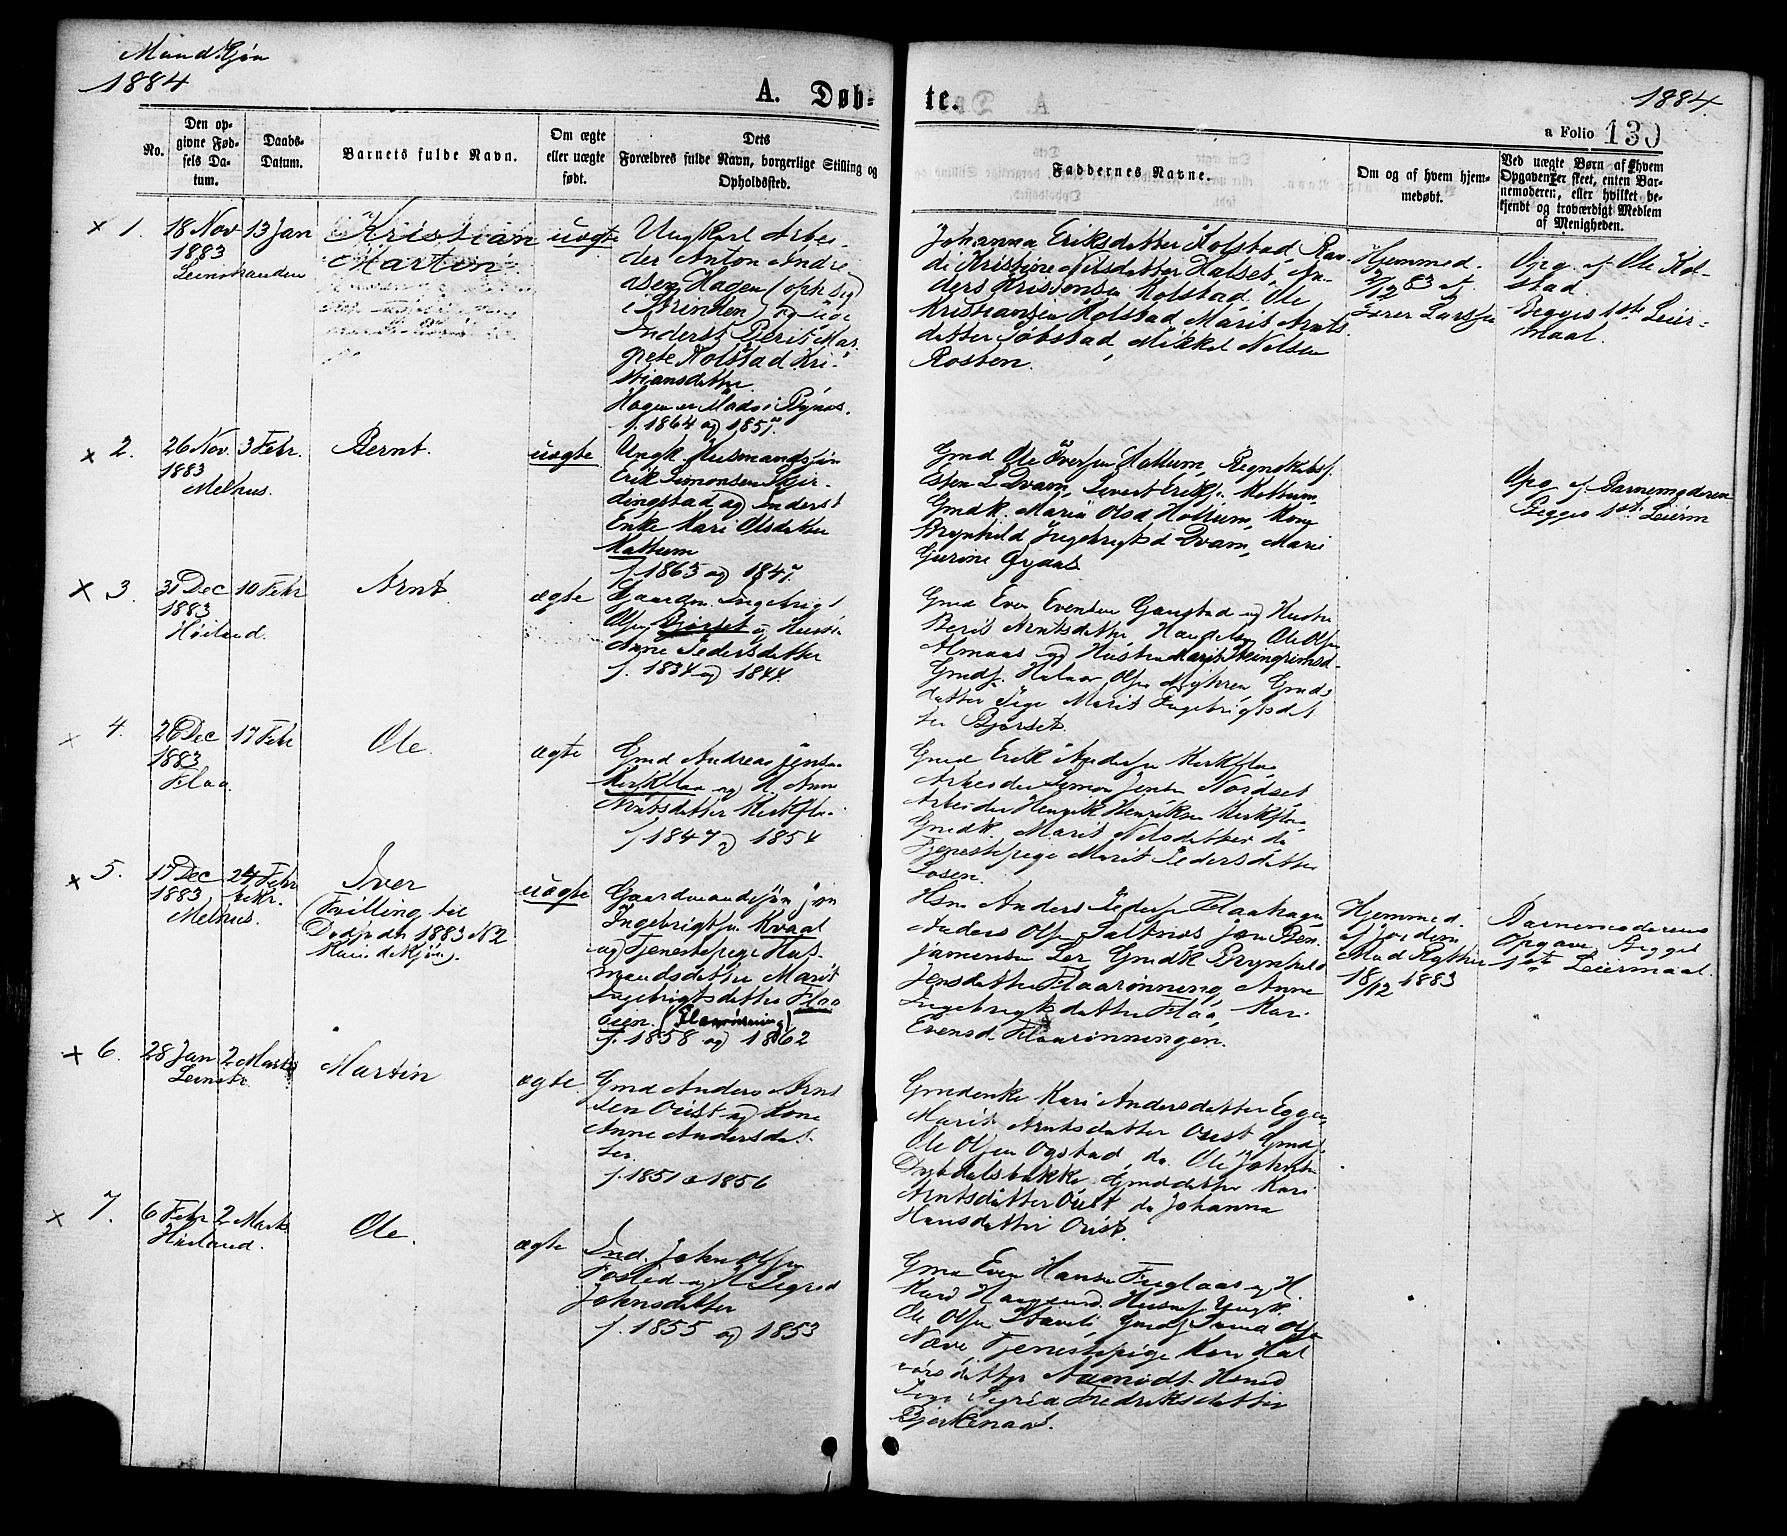 Mandkjøn
1884
A. Døb-
te.
1884.
a Folio 130
No.
Den op-
givne Fød-
sels Da-
tum.
Daabs-
Datum.
Barnets fulde Navn.
Om ægte
eller uægte
født.
Dets
Forældres fulde Navn, borgerlige Stilling og
Opholdssted.
Faddernes Navne.
Om og af hvem hjem-
medøbt.
Ved uægte Børn af hvem
Opgaven er skeet, enten Bar-
nemoderen, eller hvilket be-
kjendt og troværdigt Medlem
af Menigheden.
× 1.
18 Nov
1883
Leinstranden
13 Jan
Kristian
Martin
uægte
Ungkarl Arbei-
der Anton Andre
asen Hagen (oph. sig
i Strinden) og
Inderst Berit Mar
grete Kolstad Kri-
stiansdatter
Hagen er i Bynes.
f. 1864 og 1857.
Johanna Eriksdatter Kolstad, Ran
di Kristine Nilsdatter Halset, An-
ders Kristensen Kolstad, Ole
Kristiansen Kolstad Marit Arnts
datter Søbstad, Mikkel Nilsen
Rosten.
Hjemmed.
2/12 83 af
Lærer Larssen
Opg. af Ole Kol-
stad.
Begges 1ste Leier-
maal.
× 2.
26 Nov.
1883
Melhus.
3 Febr.
Bernt.
uægte
Ungk. Husmandssøn
Erik Simonsen Skjer-
dingstad og Inderst
Enke Mari Olsdatter
Kattum
f. 1863 og 1847.
Gmd Ole Iversen Kattum,
Esten L Kvam, Sivert Eriks.
Gmdk. Marit Olsd Kone
Brynhild Ingebrigtsd Kvam, Marie
Gurine Øydal
Opg af Barnemoderen
Begges 1ste Leierm
× 3.
31 Dec
1883
Høiland.
10 Febr
Arnt.
ægte
Gaardm. Ingebrigt
Olsen Bjørset og Hustru
Anne Pedersdatter
f. 1834 og 1844.
Gmd Even Evensen Gaustad og Hustru
Berit Arntsdatter, Ole Olsen
Almaas og Hustru Marit Steingrimsd-
Gmds. Halvor Olsen Myhren Gmds
datter Pige Marit Ingebrigtsdat
ter Bjørset.
× 4.
26 Dec
1883
Flaa.
17 Febr
Ole.
ægte
Gmd Andreas Jensen
Kirkflaa og H. Anne
Arntsdatter Kirkfla.
f. 1847 og 1854
Gmd Erik Andersen Kirkflaa,
Arbeider Simon Jensen Nordset
Arbeider Henrik Henriksen Kirkflaa,
Gmdk. Marit Nilsdatter do
Tjenestepige Marit Pedersdatter
Losen.
× 5.
17 Dec
1883
Melhus.
24 Febr
Iver
(Tvilling til
Dødfødte 1883 N 2
Kvindekjøn).
uægte
Gaardmandssøn Jon
Ingebrigtsen Kvaal
og Tjenestepige Hus-
mandsdatter Marit
Ingebrigtsdatter Flaa
øien. (Flaarønning)
f. 1858 og 1862
Hsm. Anders Pedersen Flaahagen
Anders Olsen Saltnes, Jon Ben
jaminsen Ler Gmdk Brynhild
Jensdatter Flaarønning, Anne
Ingebrigtsdatter Flaa, Kari
Evensd. Flaarønningen.
Hjemmed.
af Jordem.
18/12 1883
Barnemoderens
Opgave Begges
1ste Leiermaal.
× 6.
28 Jan
Leinstr.
2 Marts
Martin
ægte
Gmd Anders Arnt
sen Oust og Kone
Anne Andersdat-
ter.
f. 1851 og 1856
Gmdenke Kari Andersdatter Eggen,
Marit Arntsdatter Oust, Gmd
Ole Olsen Ogstad, do. Ole Johnsen
Dybdalsbakke, Gmddatter Kari
Arntsdatter Oust do Johanna
Hansdatter Oust.
× 7.
6 Febr
Høiland.
2 Marts
Ole.
ægte
Ind. John Olsen
Fosted og H Sigrid
Johnsdatter
f. 1855 og 1853
Gmd Even Hansen Fuglaas og H.
Kari Ungk.
Ole Olsen Gmds Olsen
Næve, Tjenestepige Kari Hal
vorsdatter Aamodt.
Pige Fredriksdatter
Bjerkenaas.